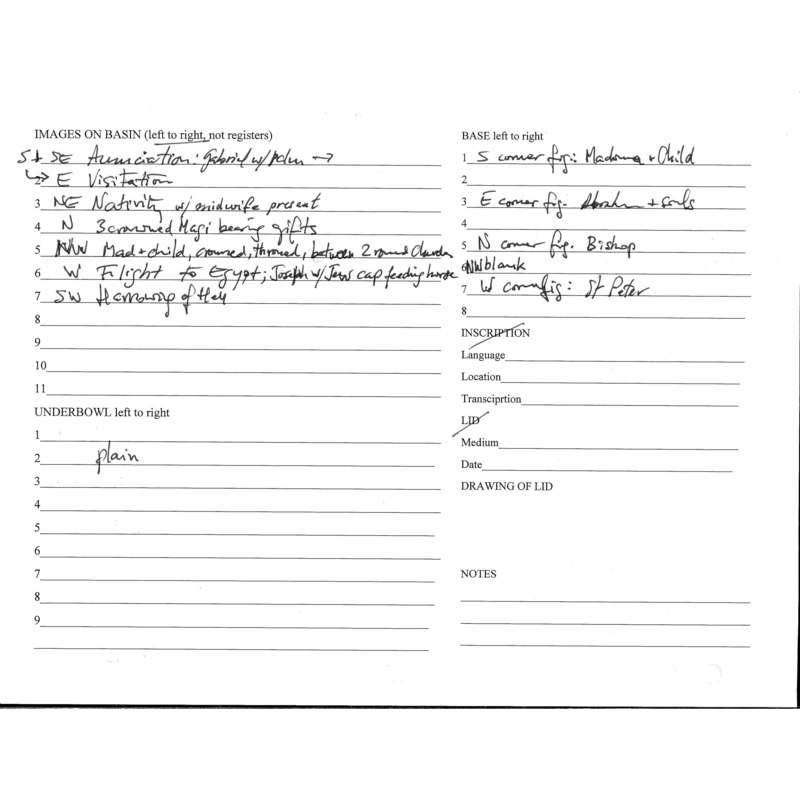 IMAGES ON BASIN (left to right, not registers)
S + SE Annunciation: Gabriel w/ palm →
↳ 2 E Visitation
3 NE Nativity w/ midwife present
4 N 3 crowned Magi bearing gifts
5 NW Mad + child, crowned, throned, between 2 round
6 W Flight to Egypt; Joseph w/ Jews cap feeding horse
7 SW Harrowing of Hell
8
9
10
11
UNDERBOWL left to right
1
2 plain
3
4
5
6
7
8
9
BASE left to right
1 S corner fig: Madonna + Child
2
3 E corner fig. Abraham + souls
4
5 N corner fig: Bishop
6 NW blank
7 W corner fig: St Peter
8
INSCRIPTION
Language
Location
Transciprtion
LID
Medium
Date
DRAWING OF LID
NOTES